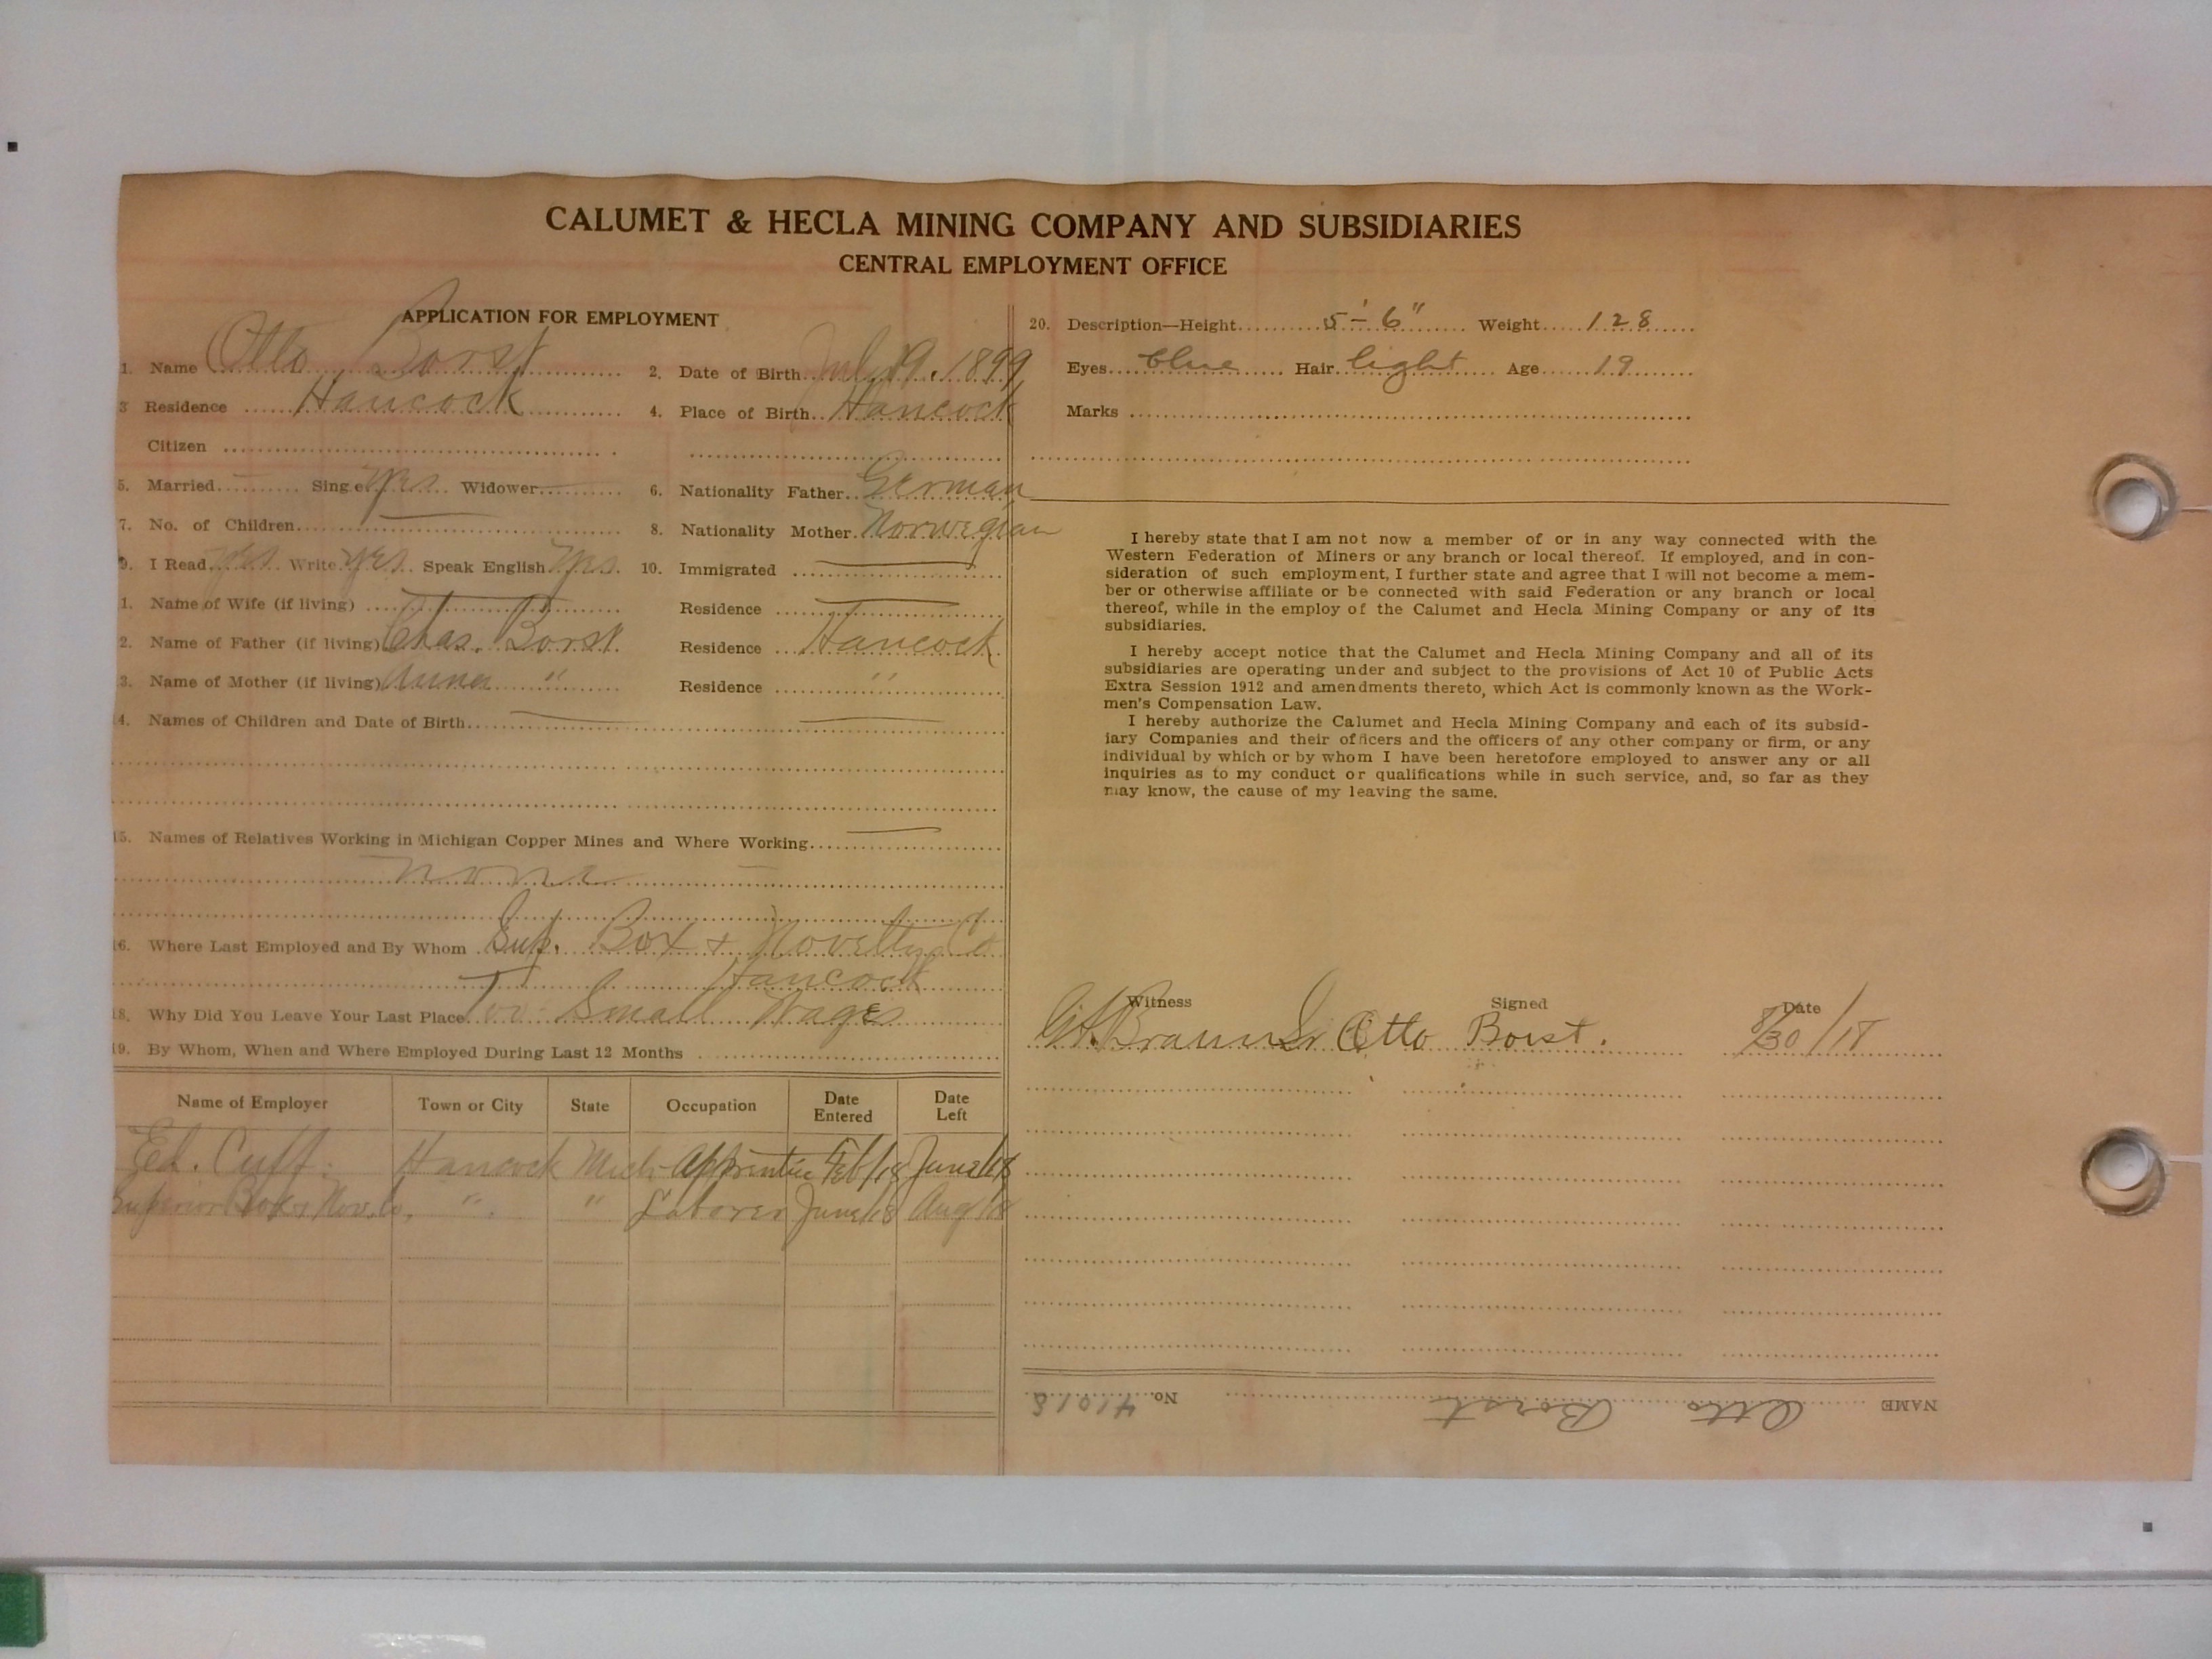 CALUMET & HECLA MINING COMPANY AND SUBSIDIARIES
CENTRAL EMPLOYMENT OFFICE
APPLICATION FOR EMPLOYMENT
1. Name Otto Borst 2. Date of Birth July 19, 1899
3 Residence Hancock 4. Place of Birth Hancock
Citizen
5. Married Single yes Widower 6. Nationality Father German
7. No. of Children 8. Nationality Mother Norwegian
9. I Read yes Write yes Speak English yes 10. Immigrated
1. Name of Wife (if living) Residence
2. Name of Father (if living) Chas. Borst Residence Hancock
3. Name of Mother (if living) Anna " Residence "
14. Names of Children and Date of Birth
15. Names of Relatives Working in Michigan Copper Mines and Where Working
None
16. Where Last Employed and By Whom Sup. Box + Novelty Co
Hancock
18. Why Did You Leave Your Last Place Too Small Wages
19. By Whom, When and Where Employed During Last 12 Months
Name of Employer Town or City State Occupation Date Entered Date Left
Ed. Cuff. Hancock Mich Apprentice Feb/18 June/18
Superior Box & Nov. Co. " " Laborer June/18 Aug/18
20. Description—Height 5'-6" Weight 128
Eyes blue Hair light Age 19
Marks
I hereby state that I am not now a member of or in any way connected with the
Western Federation of Miners or any branch or local thereof. If employed, and in con-
sideration of such employment, I further state and agree that I will not become a mem-
ber or otherwise affiliate or be connected with said Federation or any branch or local
thereof, while in the employ of the Calumet and Hecla Mining Company or any of its
subsidiaries.
I hereby accept notice that the Calumet and Hecla Mining Company and all of its
subsidiaries are operating under and subject to the provisions of Act 10 of Public Acts
Extra Session 1912 and amendments thereto, which Act is commonly known as the Work-
men's Compensation Law.
I hereby authorize the Calumet and Hecla Mining Company and each of its subsid-
iary Companies and their officers and the officers of any other company or firm, or any
individual by which or by whom I have been heretofore employed to answer any or all
inquiries as to my conduct or qualifications while in such service, and, so far as they
may know, the cause of my leaving the same.
Witness Signed Date
Braun Otto Borst. 8/30/18
NAME Otto Borst No. 41018